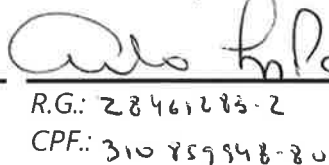 R.G.: 28461285-2
CPF.: 310 859948-80